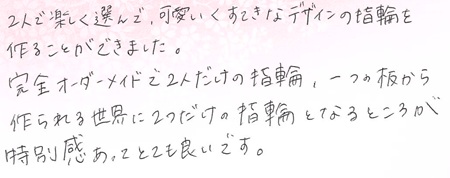 2人で楽しく選んで、可愛いくすてきなデザインの指輪を
作ることができました。
完全オーダーメイドで2人だけの指輪、一つの板から
作られる世界に2つだけの指輪となるところが
特別感あってとても良いです。